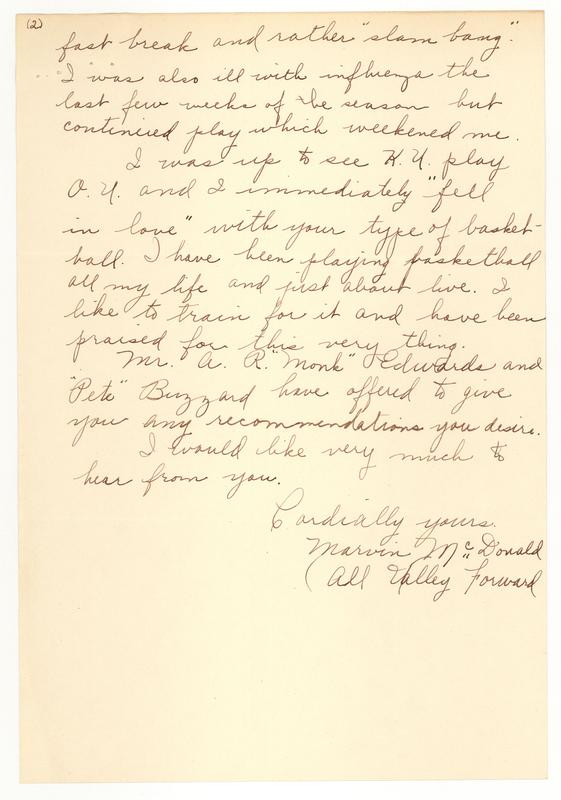 (2)
fast break and rather "slam bang".
I was also ill with influenza the
last few weeks of the season but
continued play which weekened me.
I was up to see K.U. play
O.U. and I immediately "fell
in love" with your type of basket-
ball. I have been playing basketball
all my life and just about live. I
like to train for it and have been
praised for this very thing.
Mr. A. R. "Monk" Edwards and
"Pete" Buzzard have offered to give
you any recommendations you desire.
I would like very much to
hear from you.
Cordially yours.
Marvin McDonald
(All Valley Forward